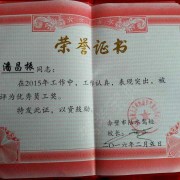 荣誉证书
潘昌振同志：
在2015年工作中，工作认真，表现突出，被
评为优秀员工奖。
特发此证，以资鼓励。
校长：
二〇一六年二月五日